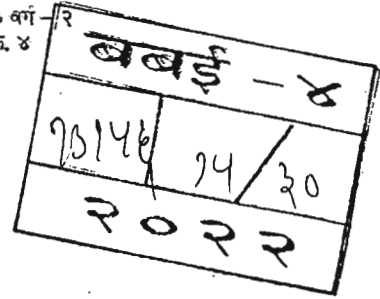 वर्ग - २
४
बबई - ४
१३१५६ १५/३०
२०२२